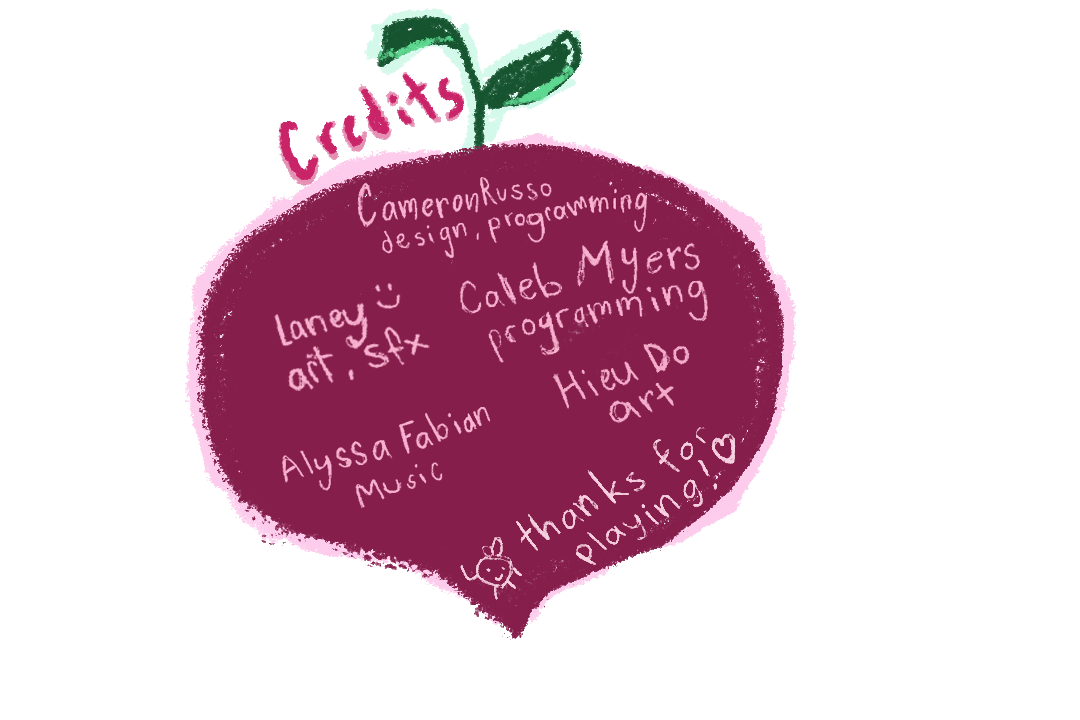 Credits
Cameron Russo
design, programming
Laney :)
art, sfx
Caleb Myers
programming
Hieu Do
art
Alyssa Fabian
Music
thanks for
playing! ♡